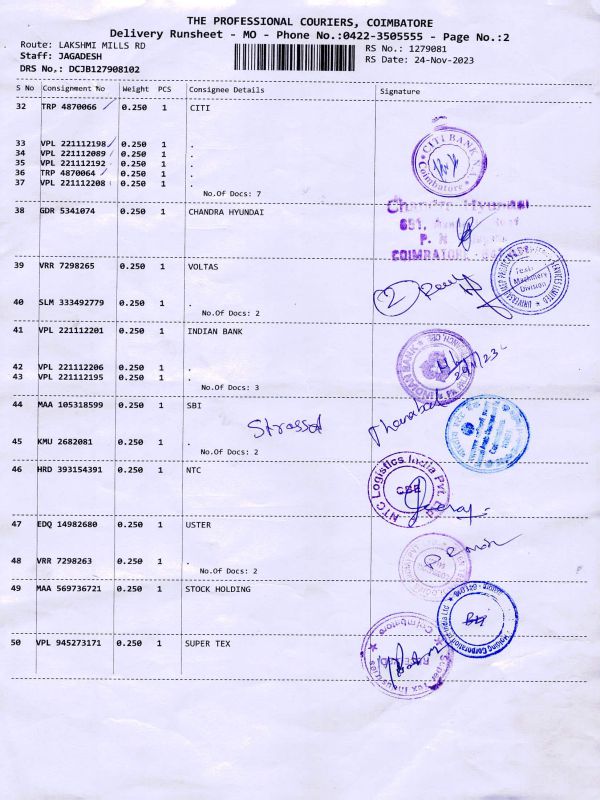 THE PROFESSIONAL COURIERS, COIMBATORE
Delivery Runsheet - MO - Phone No.:0422-3505555 - Page No.:2
Route: LAKSHMI MILLS RD
RS No.: 1279081
Staff: JAGADESH
RS Date: 24-Nov-2023
DRS No,: DCJB127908102
S No Consignment No Weight PCS Consignee Details Signature
32 TRP 4870066 0.250 1 CITI
33 VPL 221112198 0.250 1 .
34 VPL 221112089 0.250 1 .
35 VPL 221112192 0.250 1 .
36 TRP 4870064 0.250 1 .
37 VPL 221112208 0.250 1 .
No.Of Docs: 7
CITI BANK N.A.
Coimbatore
38 GDR 5341074 0.250 1 CHANDRA HYUNDAI
Chandra Hyundai
691,
P. N
COIMBATORE
39 VRR 7298265 0.250 1 VOLTAS
40 SLM 333492779 0.250 1 .
No.Of Docs: 2
2
Textile Machinery Division
41 VPL 221112201 0.250 1 INDIAN BANK
42 VPL 221112206 0.250 1 .
43 VPL 221112195 0.250 1 .
No.Of Docs: 3
INDIAN BANK
44 MAA 105318599 0.250 1 SBI
45 KMU 2682081 0.250 1 .
No.Of Docs: 2
46 HRD 393154391 0.250 1 NTC
NTC Logistics India Pvt. Ltd
CBE
47 EDQ 14982680 0.250 1 USTER
48 VRR 7298263 0.250 1 .
No.Of Docs: 2
49 MAA 569736721 0.250 1 STOCK HOLDING
Holding Corporation of India Ltd
50 VPL 945273171 0.250 1 SUPER TEX
Super Tex Industries
Coimbatore